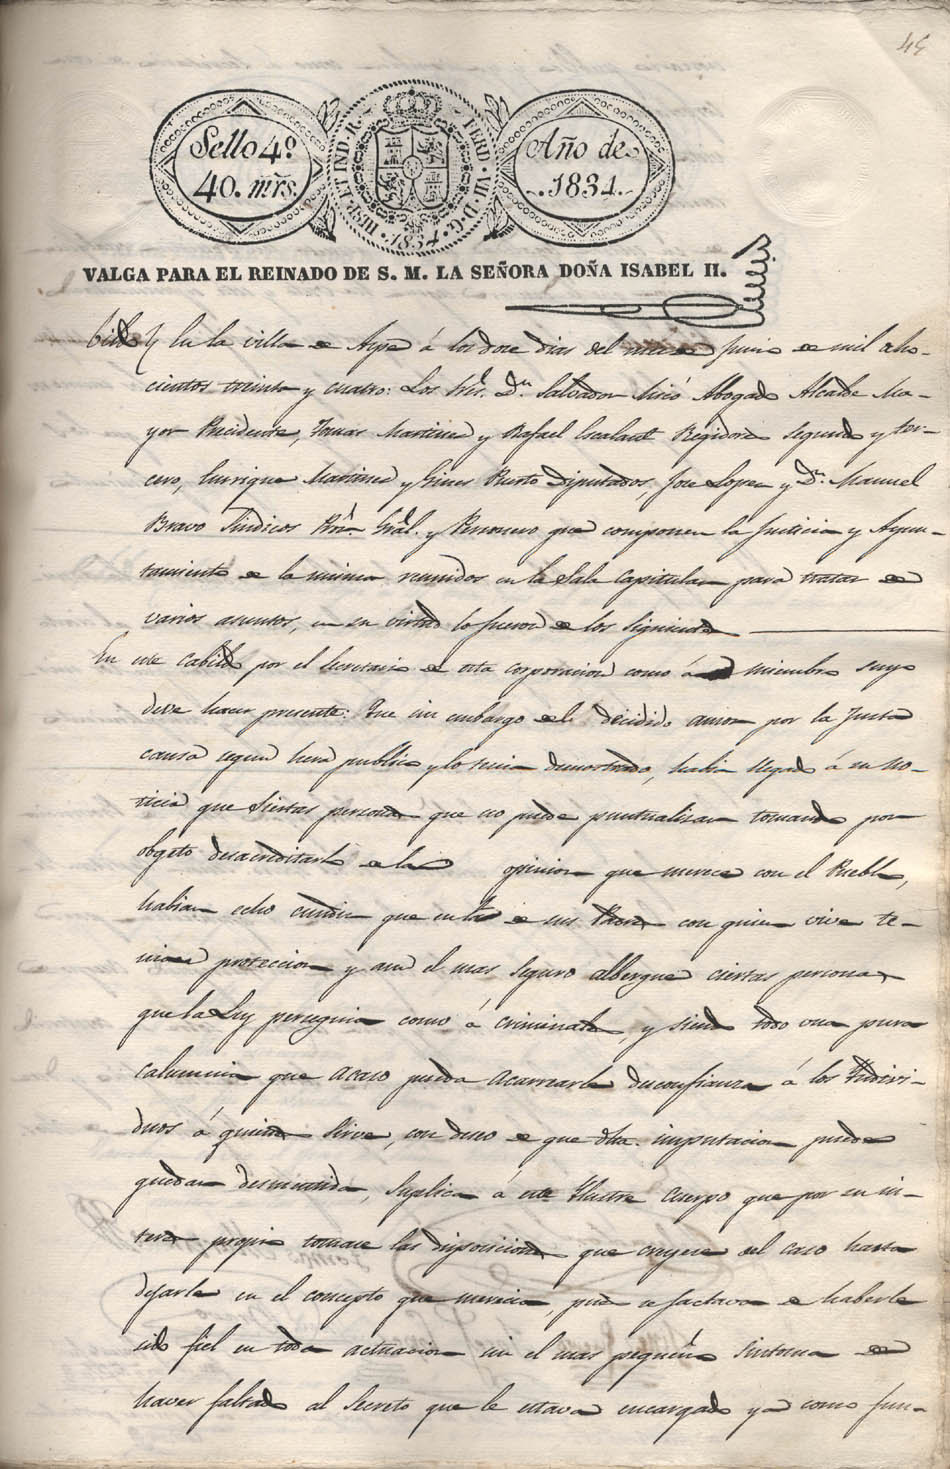 45
Sello 4º
40. mrs.
HISP. ET IND. R. FERD. VII. D. G.
1834.
Año de
1834.
VALGA PARA EL REINADO DE S. M. LA SEÑORA DOÑA ISABEL II.
Cildo En la villa de á los doce dias del mes de Junio de mil ocho-
cientos treinta y cuatro: Los Sres. Dn. Salvador Abogado Alcalde Ma-
yor Precidente, Tomas Martinez y Rafael Escalant Regidores Segundo y ter-
cero, Enrique Martinez y Gines Puerto Diputados, Jose Lopez y Dn. Manuel
Bravo Sindicos Pror. Gral. y Personero que componen la Justicia y Ayun-
tamiento de la misma reunidos en la Sala Capitular para tratar de
varios asuntos, en su virtud lo fueron de los siguientes
En este Cabildo por el Secretario de esta corporacion como á miembro suyo
deve hacer presente: Que sin embargo del decidido amor por la Justa
causa segun hera publico y lo tenia demostrado, habia llegado á su no-
ticia que siertas personas que no puede puntualisar tomando por
objeto desacreditarle de la opinion que merece con el Pueblo,
habian echo cundir que en la de sus Padres con quien vive te-
nian proteccion y aun el mas seguro albergue ciertas personas
que la Ley perseguia como á criminales, y siendo todo una pura
calumnia que acaso pueda acarrearle desconfianza á los Individi-
duos á quienes sirve, con deseo de que dha. imputacion pueda
quedar desmentida, Suplica á este Ilustre Cuerpo que por su in-
teres propio tomase las disposiciones que creyese del caso hasta
dejarle en el concepto que merecia, pues se jactava de haberle
sido fiel en toda actuacion sin el mas pequeño sintoma de
haver faltado al Secreto que le estava encargado ya como fun-